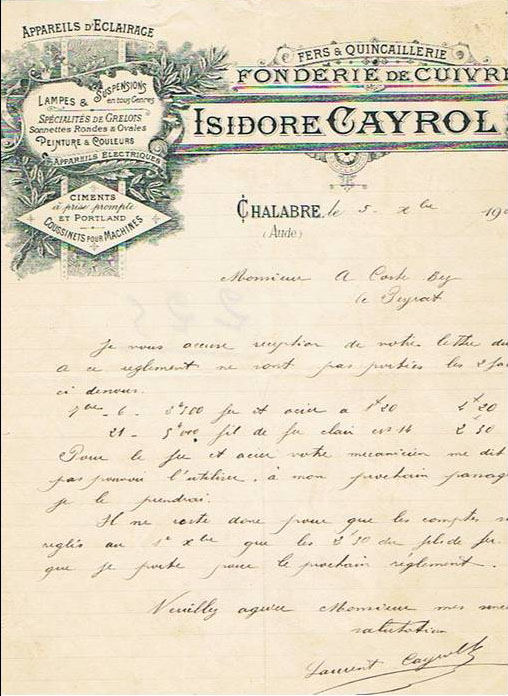 APPAREILS D'ECLAIRAGE
LAMPES & SUSPENSIONS
en tous Genres
SPÉCIALITÉS DE GRELOTS
Sonnettes Rondes & Ovales
PEINTURE & COULEURS
APPAREILS ELECTRIQUES
CIMENTS
à prise prompte
ET PORTLAND
COUSSINETS POUR MACHINES
FERS & QUINCAILLERIE
FONDERIE DE CUIVRE
ISIDORE CAYROL
CHALABRE, le 5 - xbre 19
(Aude)
Monsieur A Coste
le Peyrat
Je vous accuse reception de votre lettre du
a ce reglement ne sont pas portées les 2
ci dessous.
7bre - 6 - fer et acier a 1f20
21 - fil de fer clair No 14 2 50
Pour le fer et acier votre mecanicien me dit
pas pouvoir l'utiliser, à mon prochain passage
je le prendrai.
Il ne reste donc pour que les comptes
reglés au 1er xbre que les 2f50 du fil de fer
que je porte pour le prochain reglement.
Veuillez agréer Monsieur mes
salutation
Laurent Cayrol